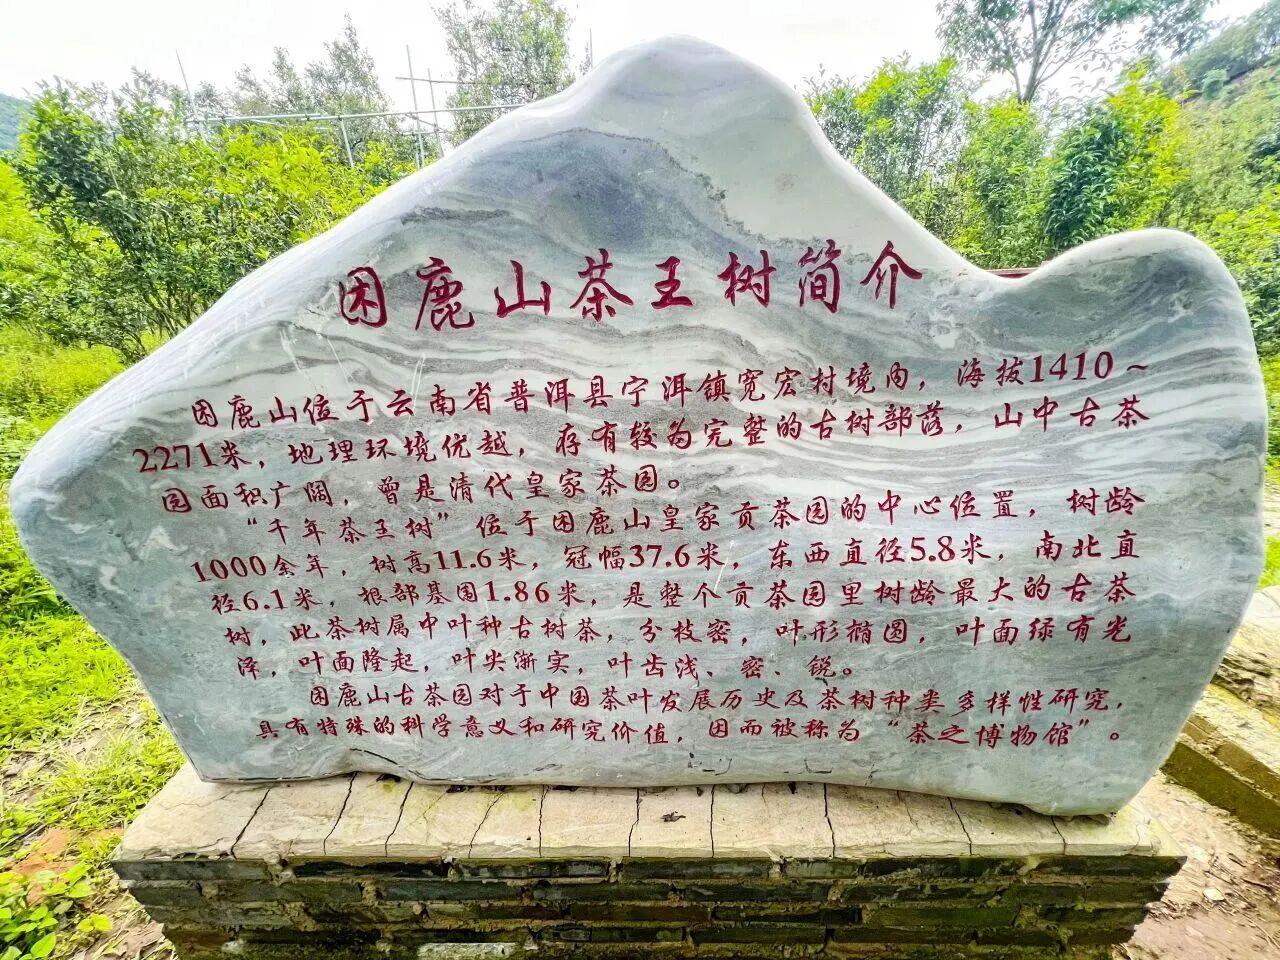 困鹿山茶王树简介
困鹿山位于云南省普洱县宁洱镇宽宏村境内，海拔1410～
2271米，地理环境优越，存有较为完整的古树部落，山中古茶
园面积广阔，曾是清代皇家茶园。
“千年茶王树”位于困鹿山皇家贡茶园的中心位置，树龄
1000余年，树高11.6米，冠幅37.6米，东西直径5.8米，南北直
径6.1米，根部基围1.86米，是整个贡茶园里树龄最大的古茶
树，此茶树属中叶种古树茶，分枝密，叶形椭圆，叶面绿有光
泽，叶面隆起，叶尖渐实，叶齿浅、密、锐。
困鹿山古茶园对于中国茶叶发展历史及茶树种类多样性研究，
具有特殊的科学意义和研究价值，因而被称为“茶之博物馆”。